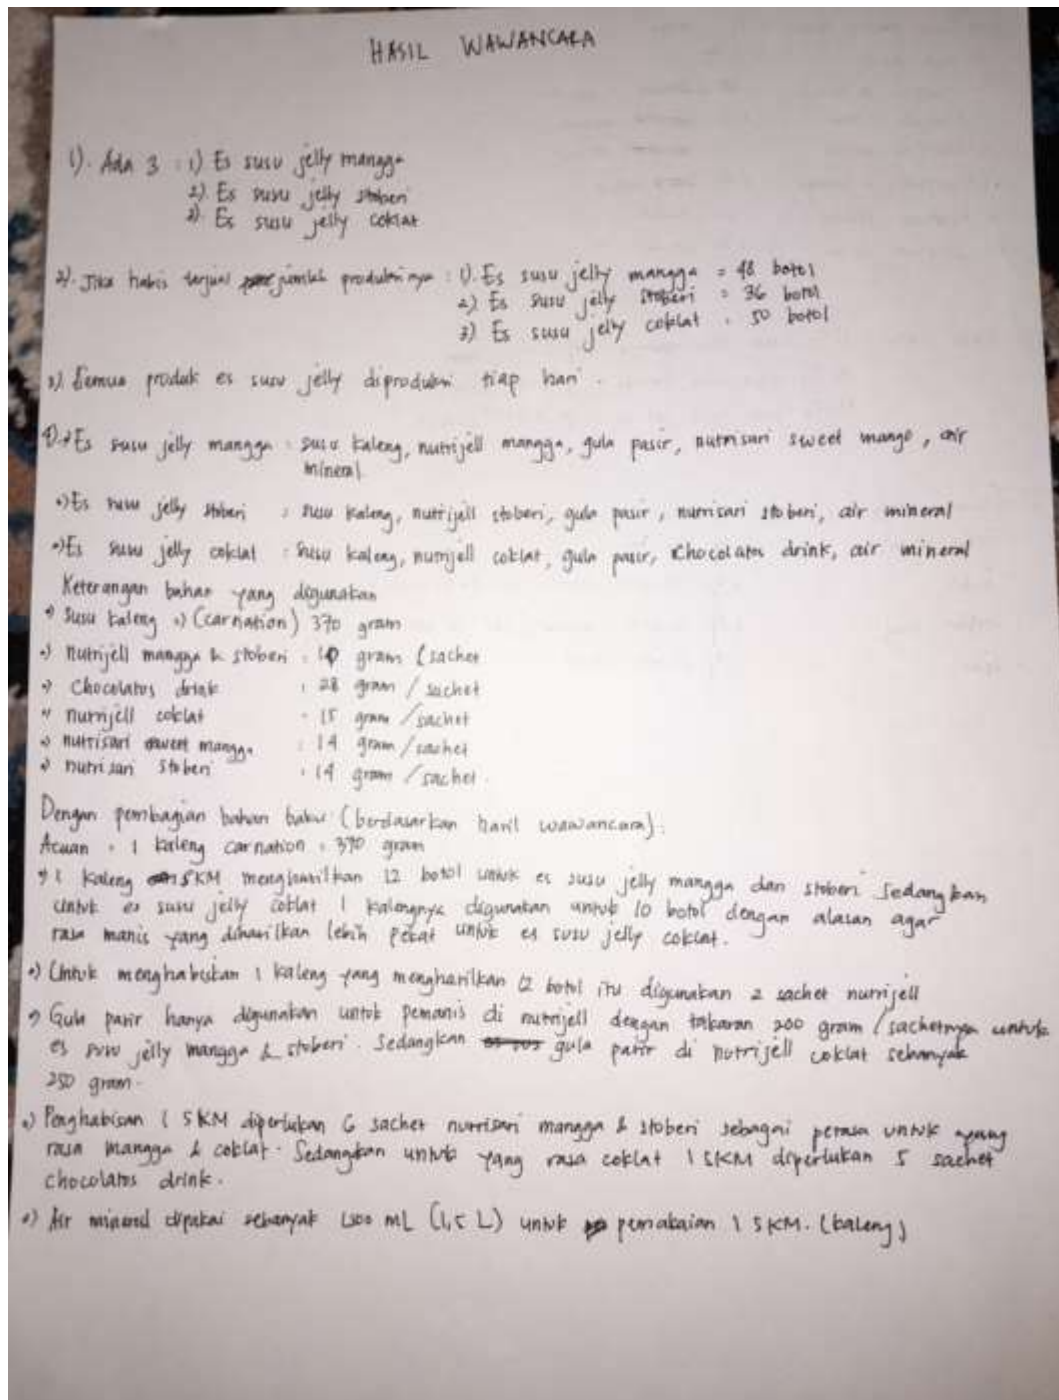 HASIL WAWANCARA
1). Ada 3 : 1) Es susu jelly mangga
2). Es susu jelly stoberi
3). Es susu jelly coklat
2). Jika habis terjual jumlah produksinya : 1). Es susu jelly mangga = 48 botol
2) Es susu jelly stoberi = 36 botol
3) Es susu jelly coklat = 50 botol
3). Semua produk es susu jelly diproduksi tiap hari.
4). → Es susu jelly mangga : susu kaleng, nutrijell mangga, gula pasir, nutrisari sweet mango, air
mineral
•) Es susu jelly stoberi : susu kaleng, nutrijell stoberi, gula pasir, nutrisari stoberi, air mineral
•) Es susu jelly coklat : susu kaleng, nutrijell coklat, gula pasir, Chocolatos drink, air mineral
Keterangan bahan yang digunakan
•) Susu kaleng •) (carnation) 370 gram
•) nutrijell mangga & stoberi : 10 gram / sachet
•) Chocolatos drink : 28 gram / sachet
•) nutrijell coklat : 15 gram / sachet
•) nutrisari sweet mangga : 14 gram / sachet
•) nutrisari stoberi : 14 gram / sachet.
Dengan pembagian bahan baku (berdasarkan hasil wawancara) :
Acuan : 1 kaleng carnation = 370 gram
•) 1 kaleng SKM menghasilkan 12 botol untuk es susu jelly mangga dan stoberi sedangkan
untuk es susu jelly coklat 1 kalengnya digunakan untuk 10 botol dengan alasan agar
rasa manis yang dihasilkan lebih pekat untuk es susu jelly coklat.
•) Untuk menghabiskan 1 kaleng yang menghasilkan 12 botol itu digunakan 2 sachet nutrijell
•) Gula pasir hanya digunakan untuk pemanis di nutrijell dengan takaran 200 gram / sachetnya untuk
es susu jelly mangga & stoberi. Sedangkan gula pasir di nutrijell coklat sebanyak
250 gram.
•) Penghabisan 1 SKM diperlukan 6 sachet nutrisari mangga & stoberi sebagai perasa untuk yang
rasa mangga & coklat. Sedangkan untuk yang rasa coklat 1 SKM diperlukan 5 sachet
chocolatos drink.
•) Air mineral dipakai sebanyak 1500 mL (1,5 L) untuk pemakaian 1 SKM. (kaleng)